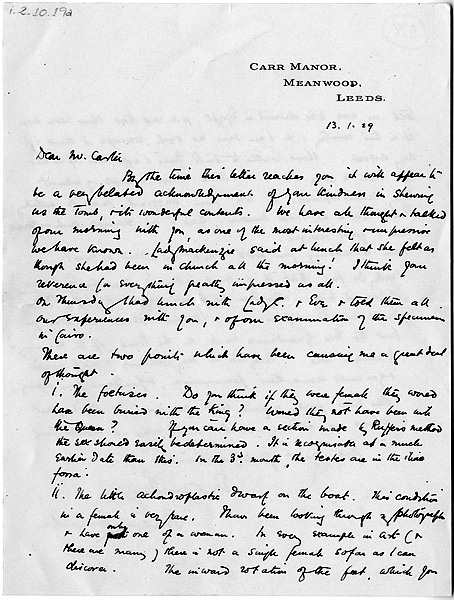 i.2.10.19a
CARR MANOR,
MEANWOOD,
LEEDS.
13.1.29
Dear Mr. Carter
By the time this letter reaches you it will appear to
be a very belated acknowledgment of your kindness in shewing
us the Tomb, & its wonderful contents. We have all thought & talked
of our morning with you, as one of the most interesting & impressive
we have known. Lady Mackenzie said at lunch that she felt as
though she had been in church all the morning! I think your
reverence for everything greatly impressed us all.
On Thursday I had lunch with Lady C. & Eve & told them all
our experiences with you, & of our examination of the specimens
in Cairo.
There are two points which have been causing me a great deal
of thought.
i. The foetuses. Do you think if they were female they would
have been buried with the King? Would they not have been with
the Queen? If you can have a section made by Ruffer's method
the sex should easily be determined. It is recognisable at a much
earlier date than this. In the 3rd month, the testes are in the iliac
fossa.
ii. The little achondroplastic dwarf on the boat. This condition
in a female is very rare. I have been looking through my photographs
& have only one of a woman. In every example in art (&
there are many) there is not a single female so far as I can
discover. The inward rotation of the feet, which you